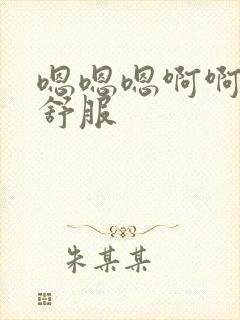 嗯嗯嗯啊啊
舒服
朱某某